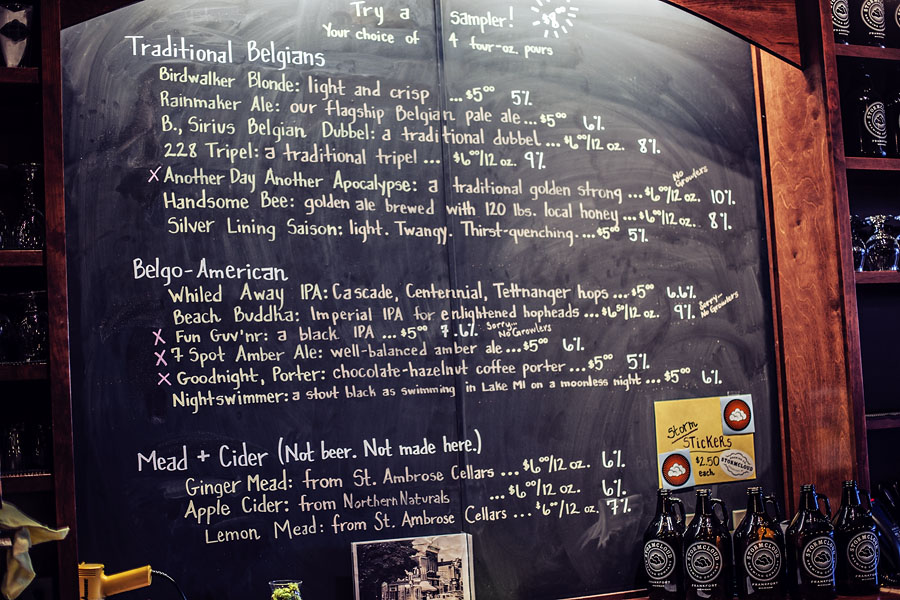 Try a sampler! $8
Your choice of 4 four-oz. pours
Traditional Belgians
Birdwalker Blonde: light and crisp ...$5⁰⁰ 5%
Rainmaker Ale: our flagship Belgian pale ale...$5⁰⁰ 6%
B., Sirius Belgian Dubbel: a traditional dubbel...$6⁰⁰/12 oz. 8%
228 Tripel: a traditional tripel... $6⁰⁰/12 oz. 9%
No Growlers
X Another Day Another Apocalypse: a traditional golden strong...$6⁰⁰/12 oz. 10%
Handsome Bee: golden ale brewed with 120 lbs. local honey...$6⁰⁰/12 oz. 8%
Silver Lining Saison: light. Twangy. Thirst-quenching....$5⁰⁰ 5%
Belgo-American
Whiled Away IPA: Cascade, Centennial, Tettnanger hops...$5⁰⁰ 6.6%
Beach Buddha: Imperial IPA for enlightened hopheads...$6⁵⁰/12 oz. 9% Sorry... No Growlers
X Fun Guv'nr: a black IPA ...$5⁰⁰ 7.6% Sorry... No Growlers
X 7 Spot Amber Ale: well-balanced amber ale...$5⁰⁰ 6%
X Goodnight, Porter: chocolate-hazelnut coffee porter...$5⁰⁰ 5%
Nightswimmer: a stout black as swimming in Lake MI on a moonless night...$5⁰⁰ 6%
Mead + Cider (Not beer. Not made here.)
Ginger Mead: from St. Ambrose Cellars ...$6⁰⁰/12 oz. 6%
Apple Cider: from Northern Naturals ...$6⁰⁰/12 oz. 6%
Lemon Mead: from St. Ambrose Cellars ...$6⁰⁰/12 oz. 7%
Storm
STickeRs
$2.50
each
STORMCLOUD
STORMCLOUD
FRANKFORT